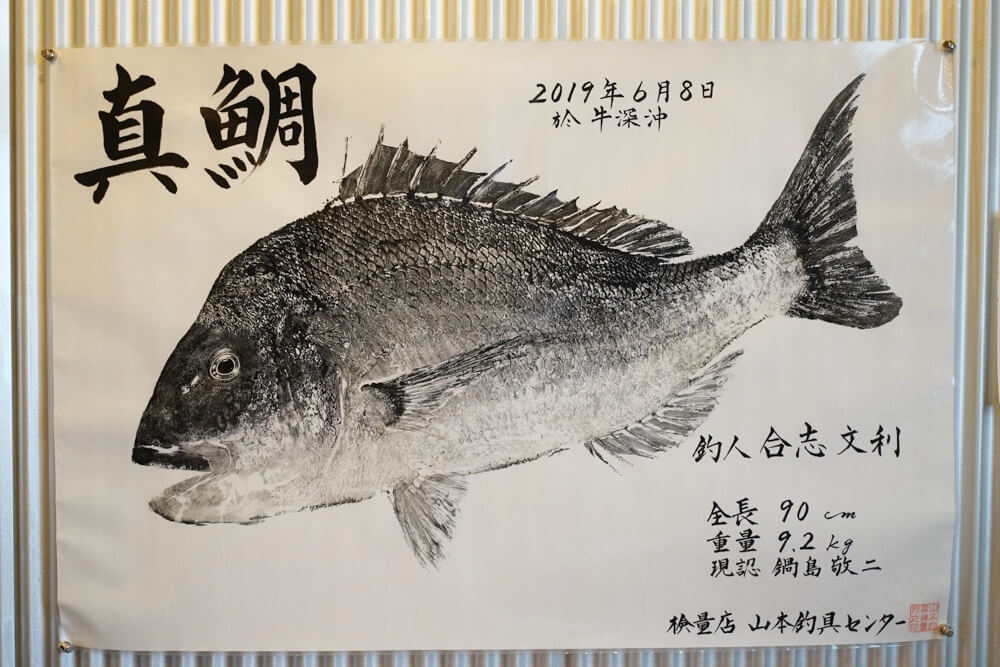 真鯛
2019年6月8日
於 牛深沖
釣人 合志文利
全長 90 cm
重量 9.2 kg
現認 鍋島敬二
検量店 山本釣具センター